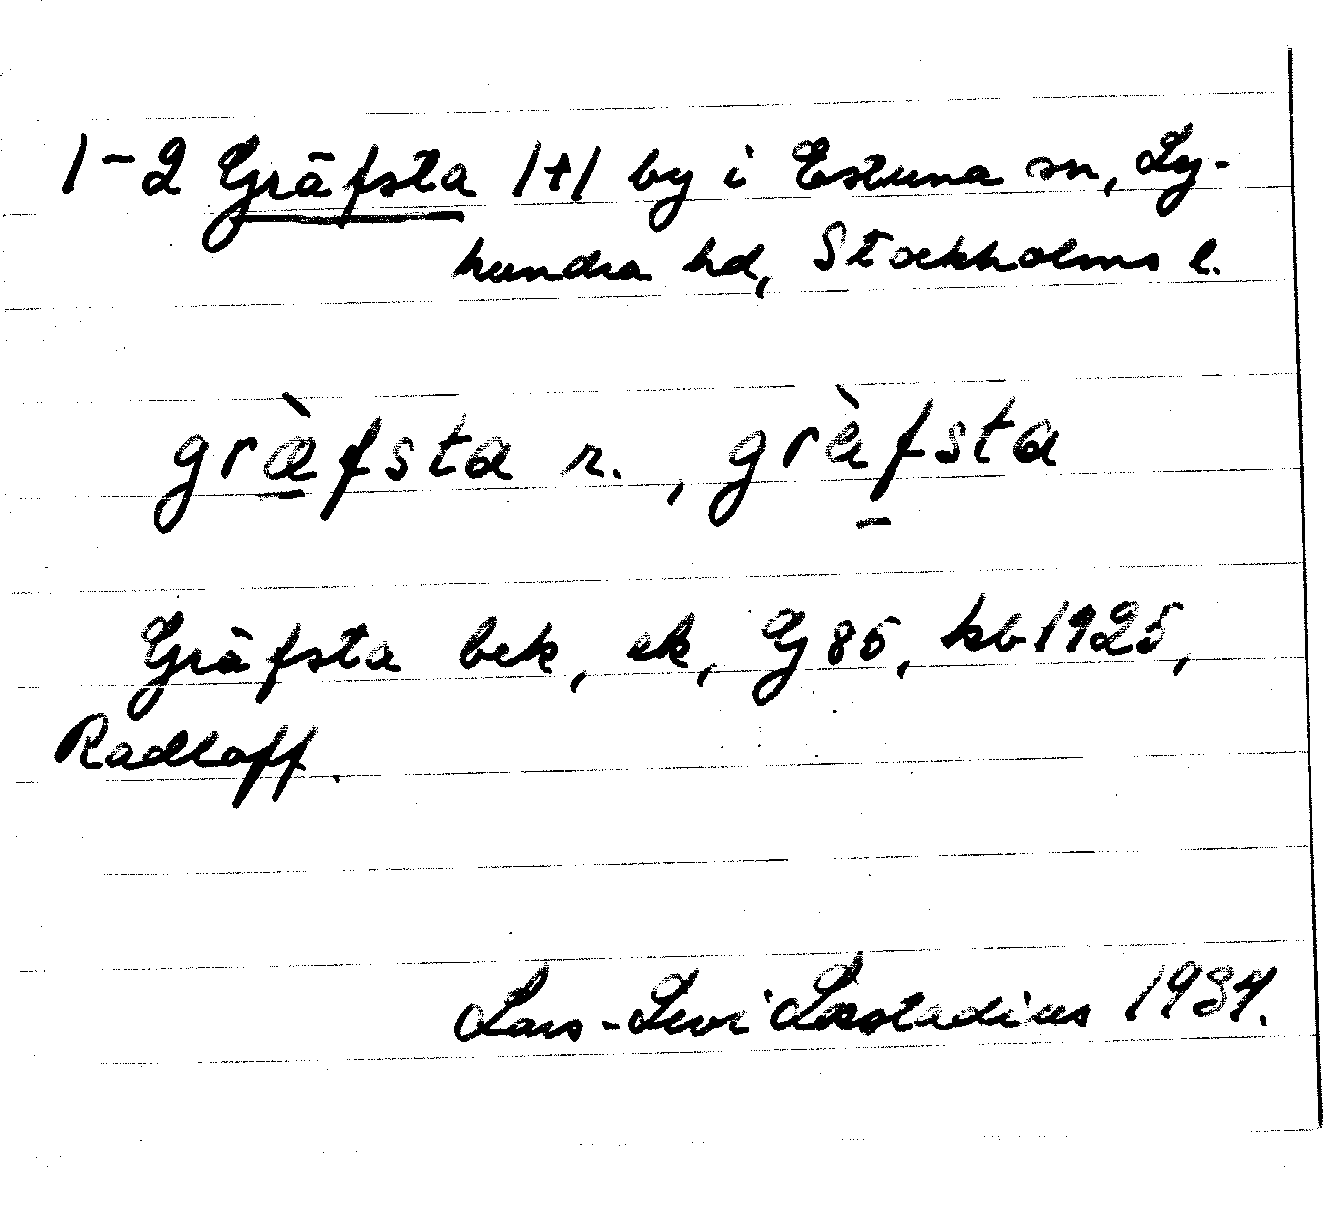 1-2 Gräfsta 1+1 by i Estuna sn, Ly-
hundra hd, Stockholms l.
græ̀fsta r., grèfsta
Gräfsta bek, ek, Gj 85, kb 1925,
Radloff.
Lars-Levi Læstadius 1934.